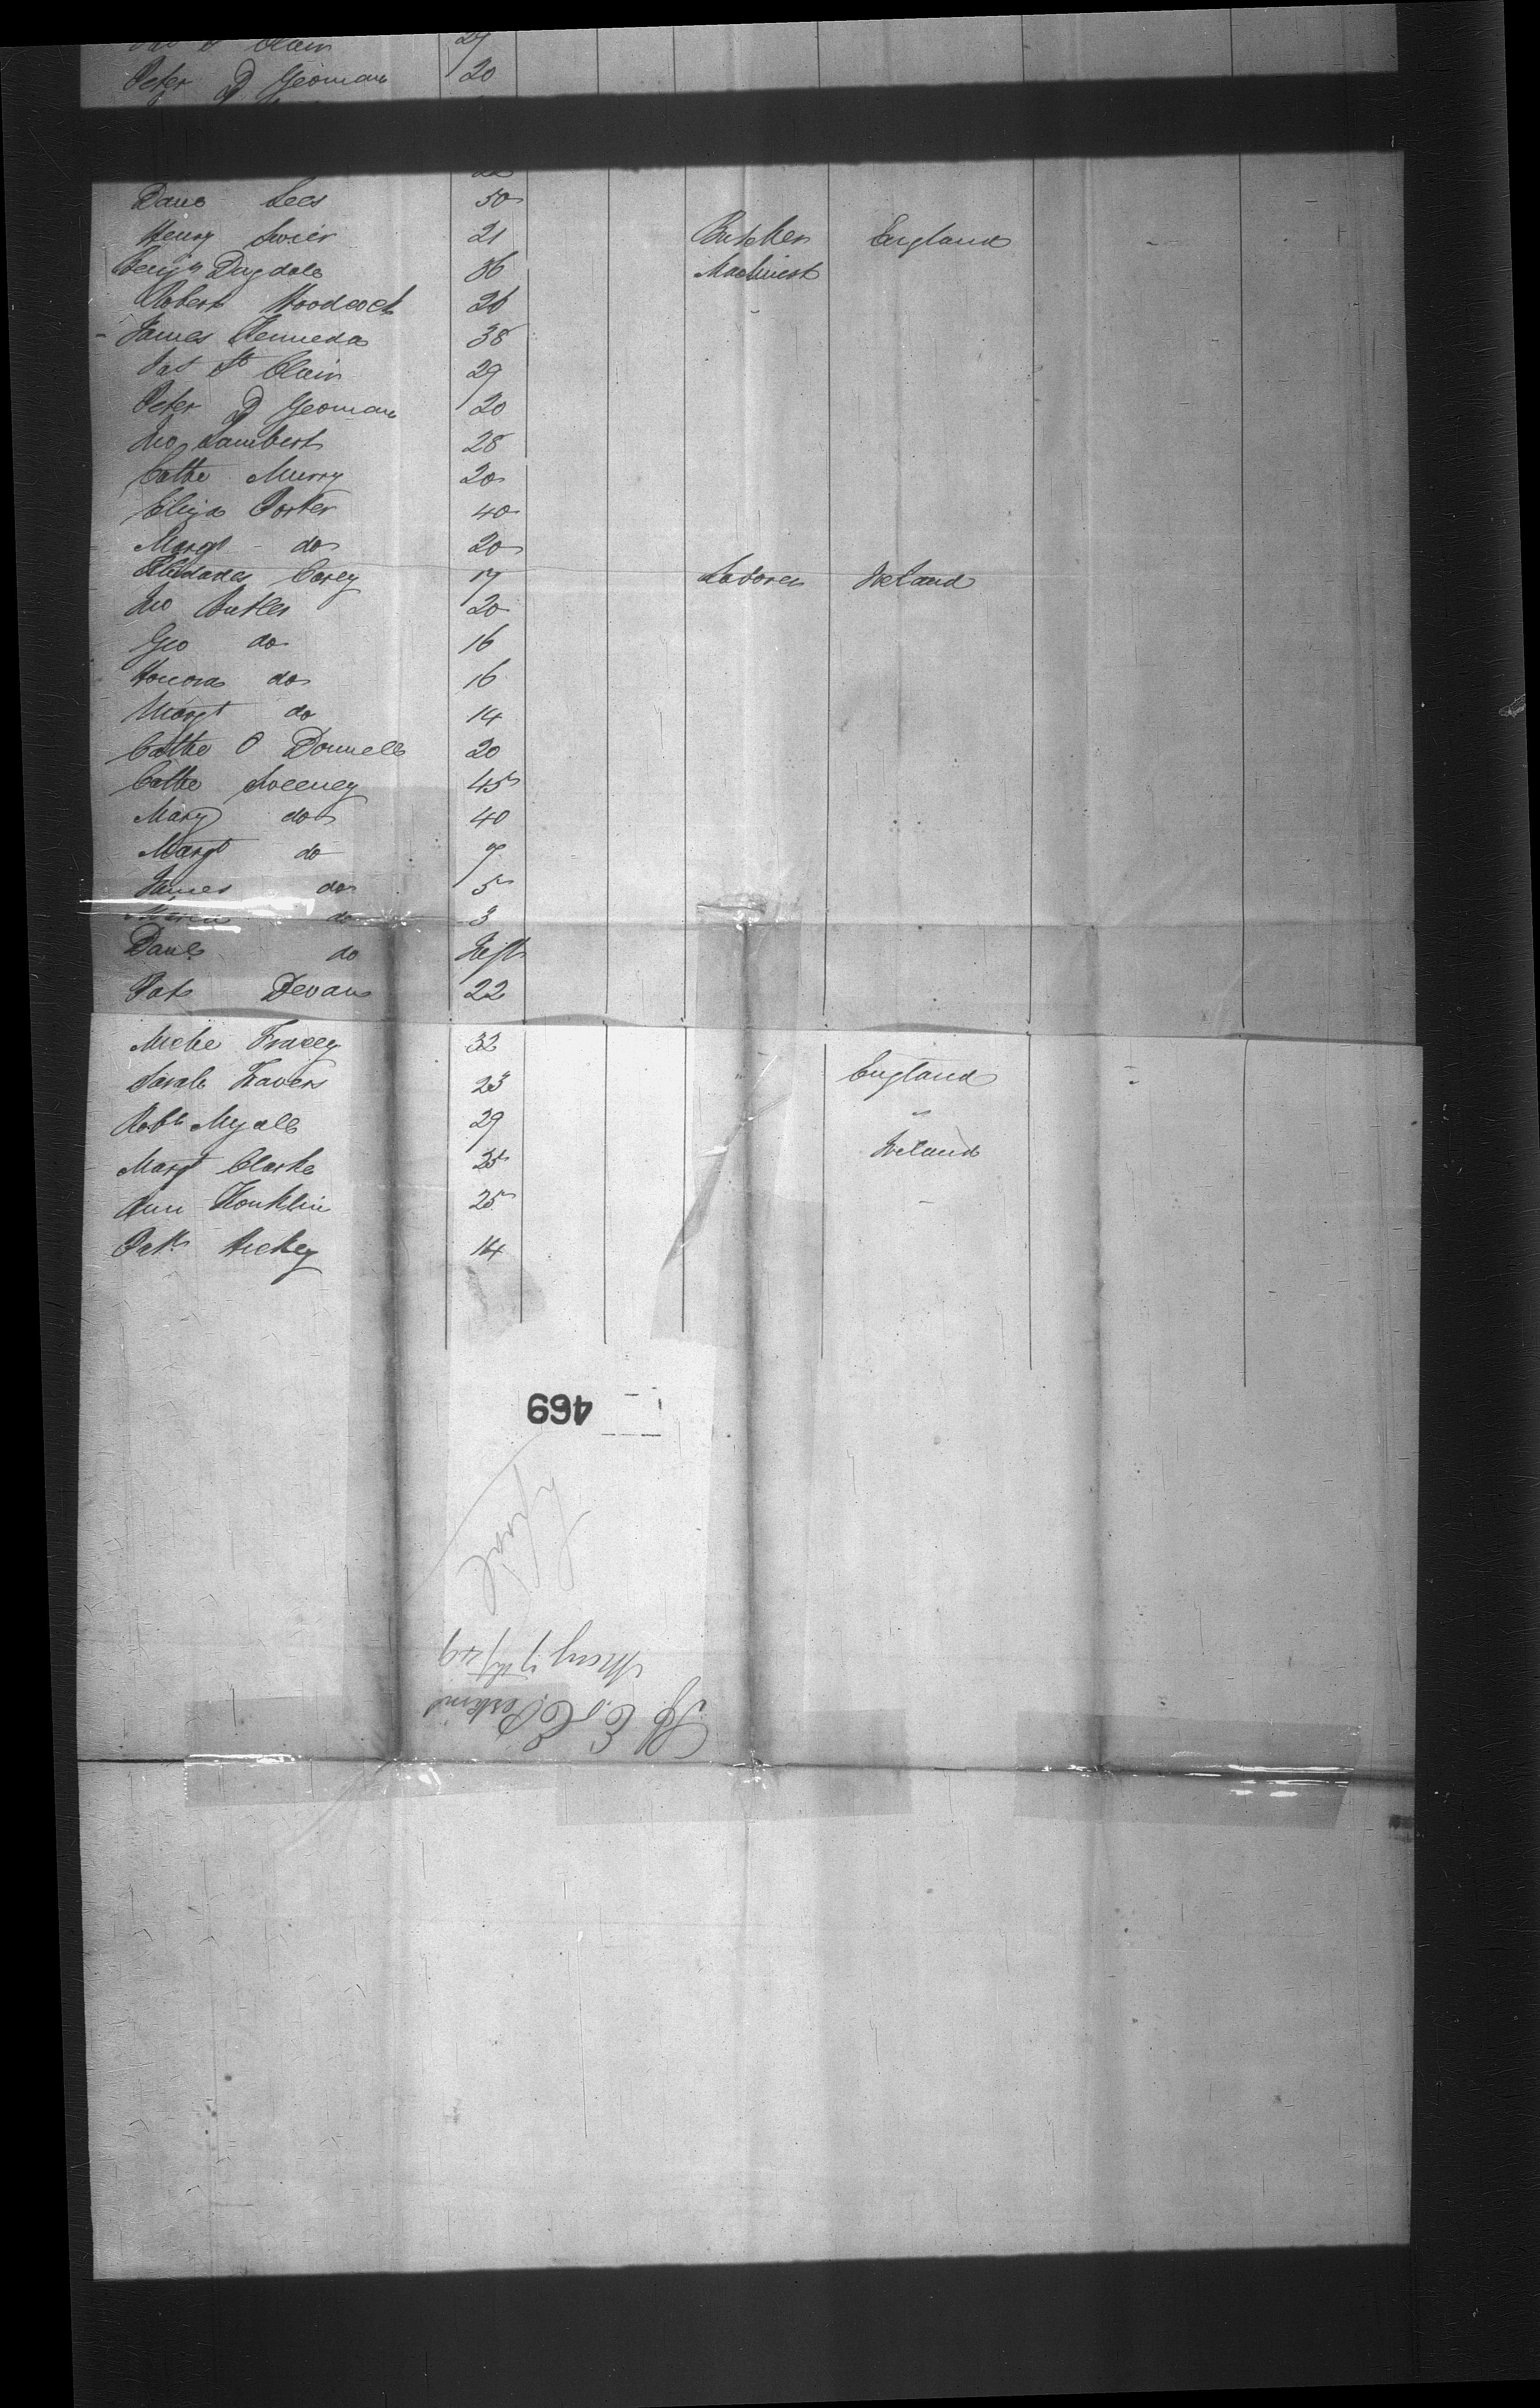 Pat St Clair 29
Peter D Yeoman 20
22
Danl Lees 50
Henry Swier 21 Butcher England
Benjn Dugdale 36 Machinist
Robert Woodcock 26
James Kenneda 38
Pat St Clair 29
Peter D Yeoman 20
Jno Lambert 28
Cathe Murry 20
Eliza Porter 40
Margt do 20
Carey 17 Laborer Ireland
Jno Butler 20
Geo do 16
Honora do 16
Margt do 14
Cathe O Donnell 20
Cathe Sweeney 45
Mary do 40
Margt do 7
James do 5
do 3
Danl do Inft
Pat Devan 22
Miche Tracey 32
Sarah Travers 23 England
Robt Myall 29 "
Margt Clarke 25 Ireland
Ann Konklin 25 "
Patk Hickey 14
469
May 7th/49